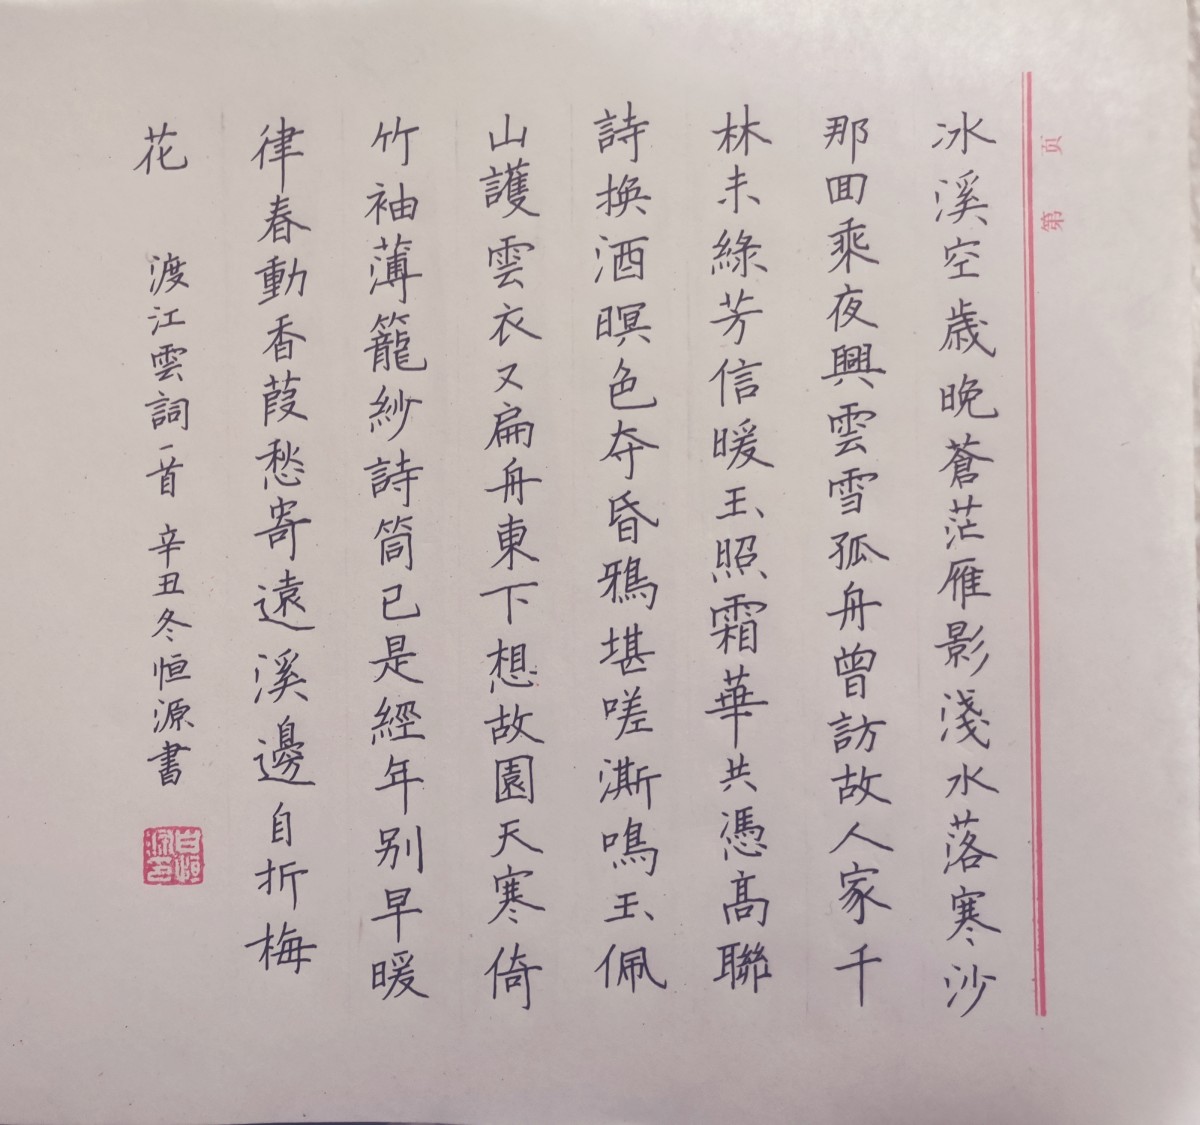 第 页
冰溪空歳晚蒼茫雁影淺水落寒沙
那囬乘夜興雲雪孤舟曾訪故人家千
林未綠芳信暖玉照霜華共憑髙聯
詩換酒暝色夺昏鴉堪嗟澌鳴玉佩
山護雲衣又扁舟東下想故園天寒倚
竹袖薄籠紗詩筒已是經年别早暖
律春動香葭愁寄遠溪邊自折梅
花 渡江雲詞一首 辛丑冬恒源書